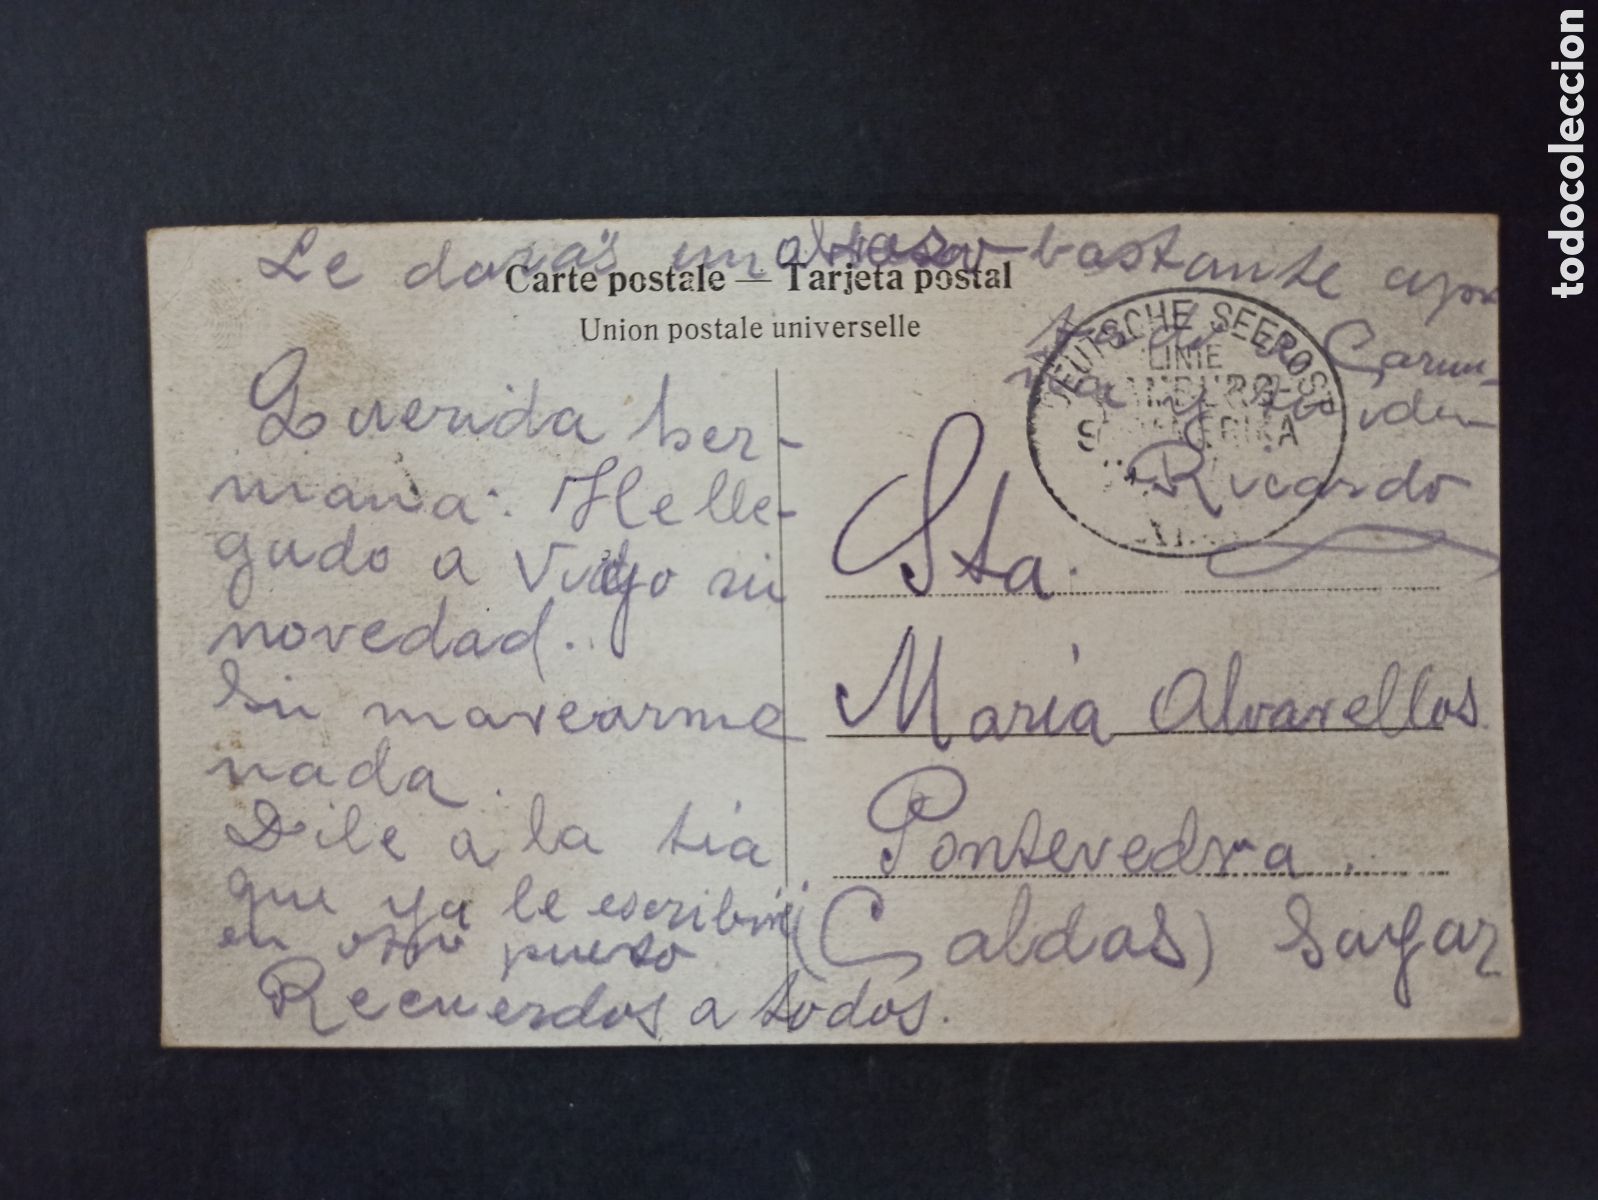 Le darás un abrazo bastante apre
Carte postale — Tarjeta postal
Union postale universelle
Carmi-
na y tu idem
Ricardo
DEUTSCHE SEEPOST
LINIE
HAMBURG-
SÜDAMERIKA
XI
Querida her-
mana: He lle-
gado a Vigo sin
novedad.
Sin marearme
nada.
Dile a la tia
que ya le escribiré
en otro puerto
Recuerdos a todos.
Sta.
María Alvarellos
Pontevedra.
(Caldas) Sayar
todocoleccion